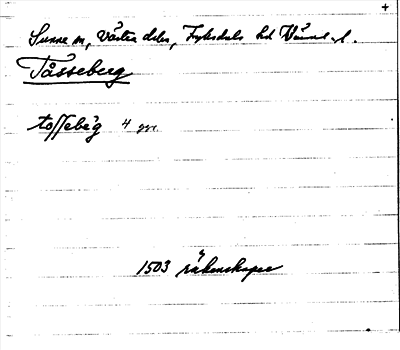 +
Sunne sn, Västra delen, Fryksdals hd Värml. l.
Tåsseberg
toffebég 4 gr.
1503 räkenskaper